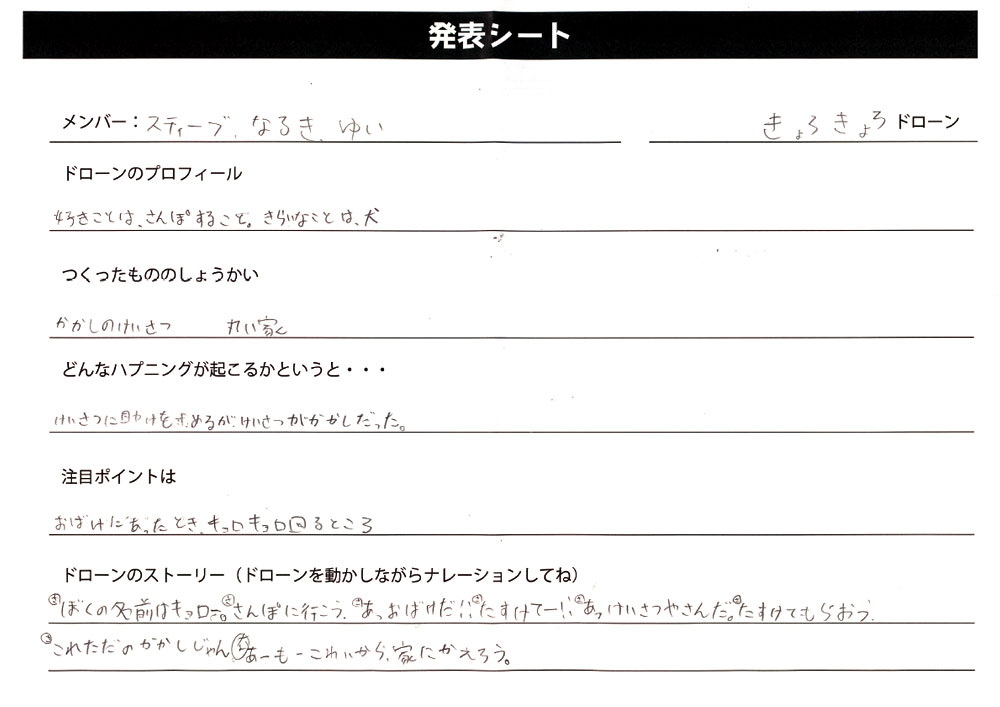 発表シート
メンバー：スティーブ、なるき、ゆい
きょろきょろドローン
ドローンのプロフィール
好きことは、さんぽすること。きらいなことは、犬
つくったもののしょうかい
かかしのけいさつ 丸い家
どんなハプニングが起こるかというと・・・
けいさつに助けを求めるが、けいさつがかかしだった。
注目ポイントは
おばけにあったとき、キョロキョロ回るところ
ドローンのストーリー（ドローンを動かしながらナレーションしてね）
ぼくの名前はキョロ さんぽに行こう。あっおばけだ!! たすけてー!! あっけいさつやさんだ。たすけてもらおう。
これただのかかしじゃん あーもーこわいから、家にかえろう。